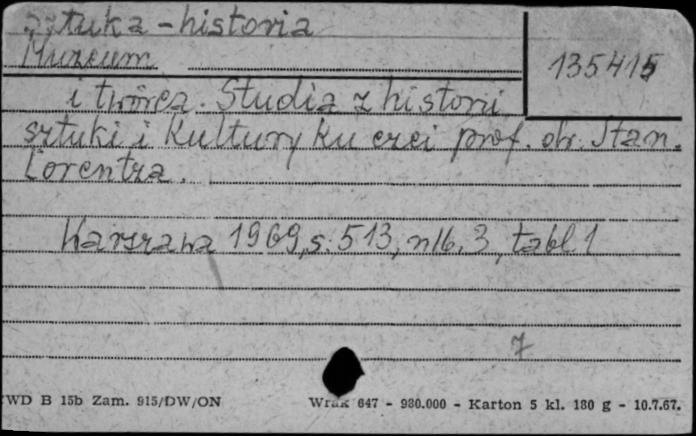 sztuka - historia
Muzeum
135415
i twórca. Studia z historii
sztuki i kultury ku czci prof. dr. Stan.
Lorentza.
Warszawa 1969, s. 513, nlb. 3, tabl. 1
7
WD B 15b Zam. 915/DW/ON
Wrak 647 - 980.000 - Karton 5 kl. 180 g - 10.7.67.